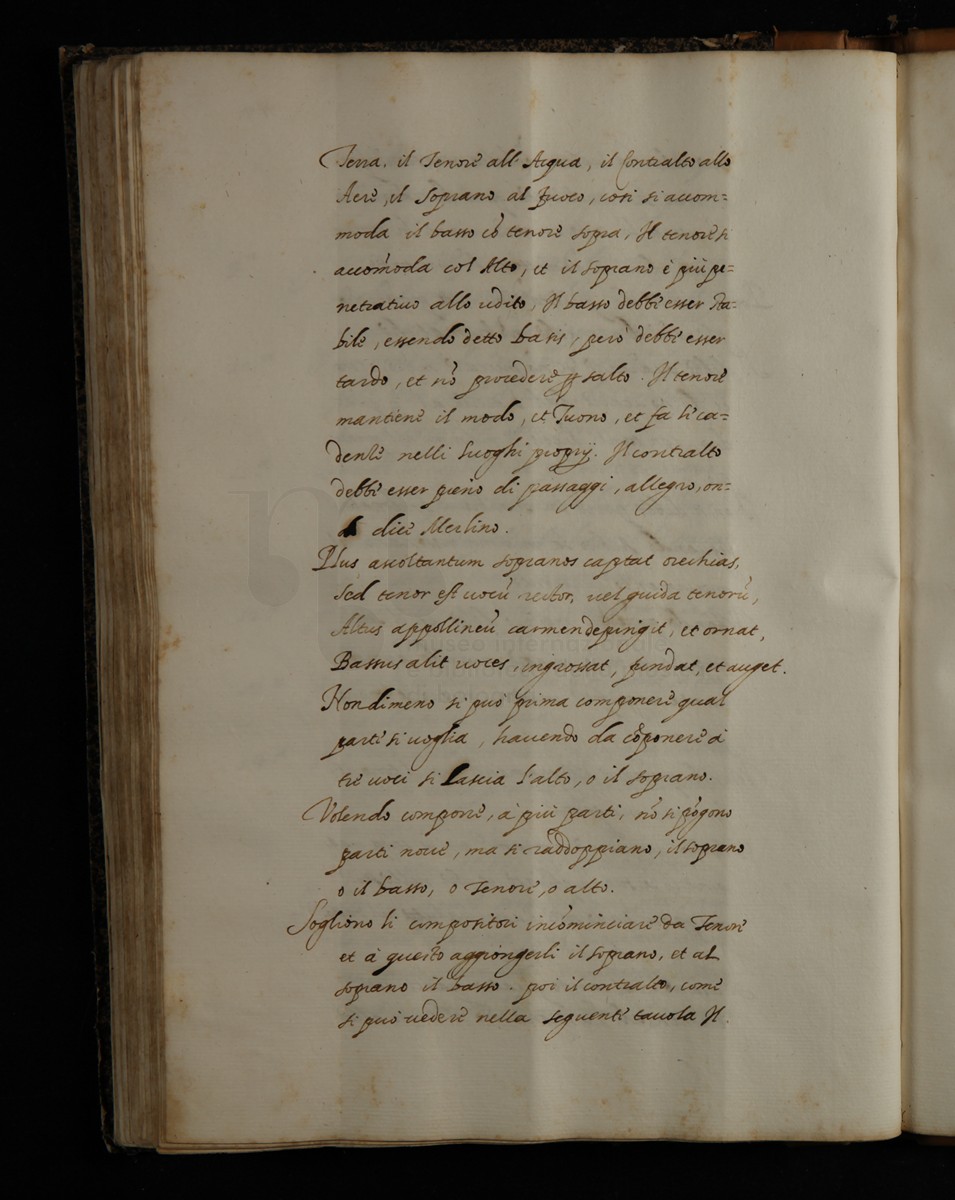 Terra. il Tenore all' Acqua, il Contralto allo
Aere, il Soprano al fuoco, cosi si accom=
moda il basso cõ tenore sopra, Il tenore si
accom̃oda col Alto, et il soprano è più pe=
netrativo allo udito, Il basso debbe esser sta=
bile, essendo detto basis, però debbe esser
tardo, et nõ procedere ꝑ salto. Il tenore
mantiene il modo, et Tuono, et fa le ca=
denze nelli luoghi proprij. Il contralto
debbe esser pieno di passaggi, allegro, on=
de dice Merlino.
Plus ascoltantum sopranos captat orechias,
Sed tenor est vocũ rector, vel guida tenorũ,
Altus appollineũ carmen depingit, et ornat,
Bassus alit voces, ingrossat, fundat, et auget.
Nondimeno si può prima componere qual
parte si voglia, havendo da cõponere à
tre voci si Lascia l'alto, o il soprano.
Volendo comporre, à più parti, nõ si põgono
parti nove, ma si raddoppiano, il soprano
o il basso, o Tenore, o alto.
Sogliono li compositori incõminciare da Tenore
et à questo aggiongerli il soprano, et al
soprano il basso. poi il contralto, come
si può vedere nella seguente tavola Il